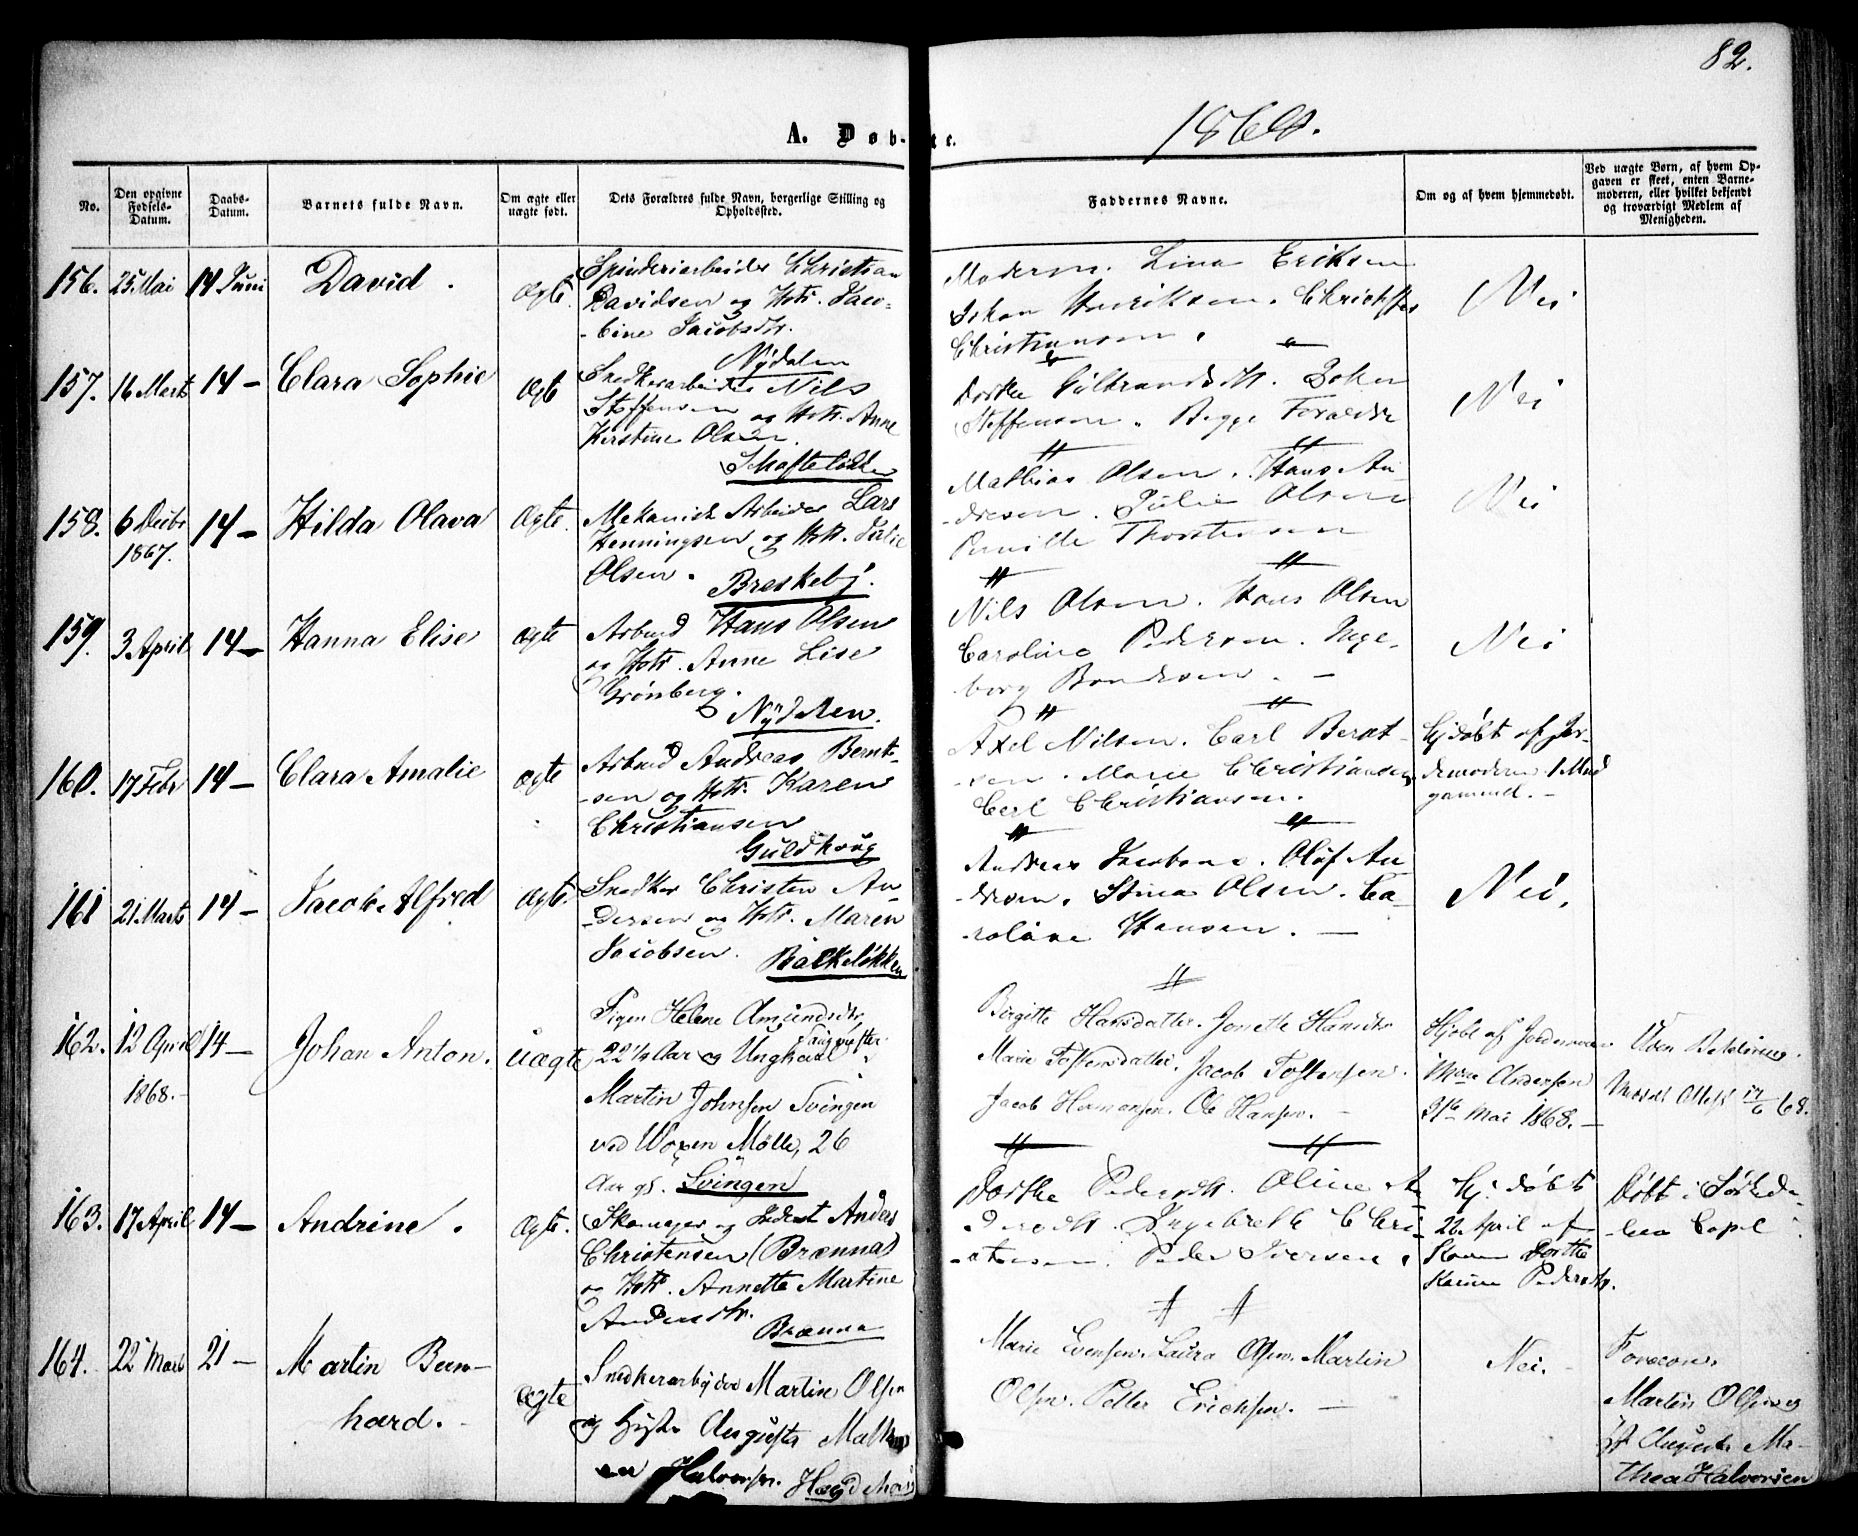 82.
1868.
A. Døb-te.
No.
Den opgivne Fødsels-Datum.
Daabs-Datum.
Barnets fulde Navn.
Om ægte eller uægte født.
Dets Forældres fulde Navn, borgerlige Stilling og Opholdssted.
Faddernes Navne.
Om og af hvem hjemmedøbt.
Ved uægte Børn, af hvem Opgaven er skeet, enten Barnemoderen, eller hvilket bekjendt og troværdigt Medlem af Menigheden.
156. 25 Mai 14 Juni David. ægte.
Spinderiarbeider Christian
Davidsen og Hstr. Jaco-
-bine Jacobsdtr.
Nydalen
Moderen. Lina Eriksen
Johan Henriksen. Christoffer
Christiansen.
Nei
157. 16 Marts 14 – Clara Sophie ægte
Snedkerarbeider Nils
Steffensen og Hstr. Anne
Kerstine Olsen.
Dorthe Gulbrandsdtr.
Steffensen. Begge Forældre
Nei
158. 6 Decbr 1867. 14 – Hilda Olava ægte.
Mekanisk Arbeider Lars
Henningsen og Hstr. Julie
Olsen.
Breskeby.
Mathias Olsen. Hans An-
-dresen. Julie Olsen
Pernille Thorstensen
Nei
159. 3 April 14 – Hanna Elise ægte
Arbmd Hans Olsen
og Hstr. Anne Lise
Grønberg.
Nydalen.
Nils Olsen. Hans Olsen
Caroline Pedersen. Inge-
-borg Bondesen. –
Nei
160. 17 Febr 14 – Clara Amalie ægte
Arbmd Andreas Bernt-
-sen og Hstr. Karen
Christiansen
Guldhaug
Axel Nilsen. Carl Bernt-
-sen. Marie Christiansen,
Carl Christiansen.
Hjdøbt af Jor-
demoderen 1 Mnd
gammel. –
161 21 Marts 14 – Jacob Alfred ægte.
Snedker Christen An-
-dersen og Hstr. Maren
Jacobsen.
Balkeløkken
Andreas Jacobsen. Oluf An-
-dresen. Stina Olsen. Ca-
-roline Hansen. –
Nei.
162. 12 April 1868. – 14 – Johan Anton. uægte
Pigen Helene Amundsdtr,
22 1/2 Aar og Ungkarl
Martin Johnsen Svingen
ved Woxen Mølle, 26
Aar gl. Svingen
Birgitte Hansdatter. Jonette Hansdtr
Marie Tostensdatter. Jacob Tostensen.
Jacob Hermansen. Ole Hansen. –
Hjdbt af Jordemoder
Andersen
31te Mai 1868. –
Uden
Attest 14/6 68.
163. 17 April 14 – Andrine. ægte.
Skomager og Anders
Christensen (Brænna)
og Hstr. Annette Martine
Andersdtr.
Brænna
Dorthe Pedersdtr. Oline An-
dersdtr. Ingebreth Chri-
-stensen. Peder Iversen.
Hj. døbt
22 April af
Dorthe
Karine Pedersdtr.
Døbt i Sørkeda-
-len Capel
164. 22 Marts 21 – Martin Bern-
hard. – ægte
Snedkerarbeider Martin Olsen
og Hustru Augusta Mathea
Halvorsen.
Marie Evensen. Laura Olsen. Martin
Olsen. Petter Erichsen. –
Nei. –
Martin Olsen og
Augusta Ma-
thea Halvorsen